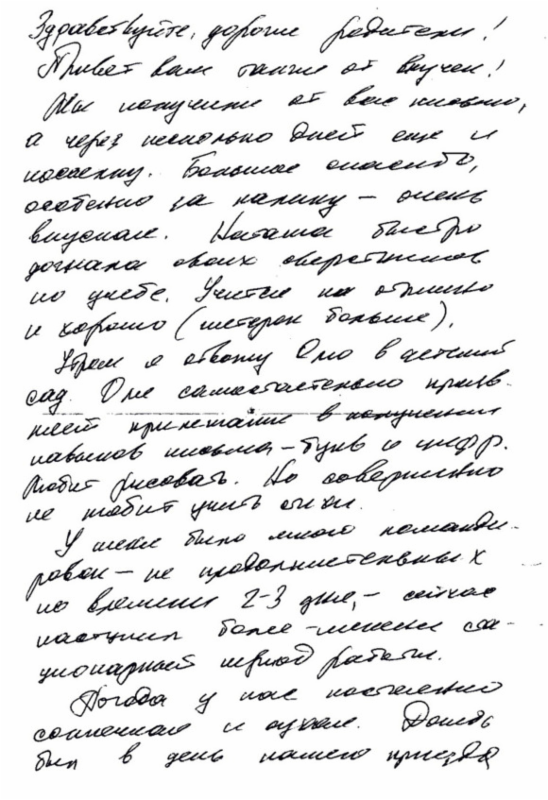 Здравствуйте, дорогие родители!
Привет вам также от внучек!
Мы получили от вас письмо,
а через несколько дней еще и
посылку. Большое спасибо,
особенно за калину – очень
вкусная. Наташа быстро
догнала своих сверстников
по учебе. Учится на отлично
и хорошо (четверок больше).
Утром я отвожу Олю в детский
сад. Оля самостоятельно прояв-
ляет прилежание в получении
навыков письма – букв и цифр.
Любит рисовать. Но совершенно
не любит учить стихи.
У меня было много команди-
ровок – не продолжительных
по времени 2-3 дня, – сейчас
наступил более-менее ста-
ционарный период работы.
Погода у нас постоянно
солнечная и сухая. Дождь
был в день нашего приезда